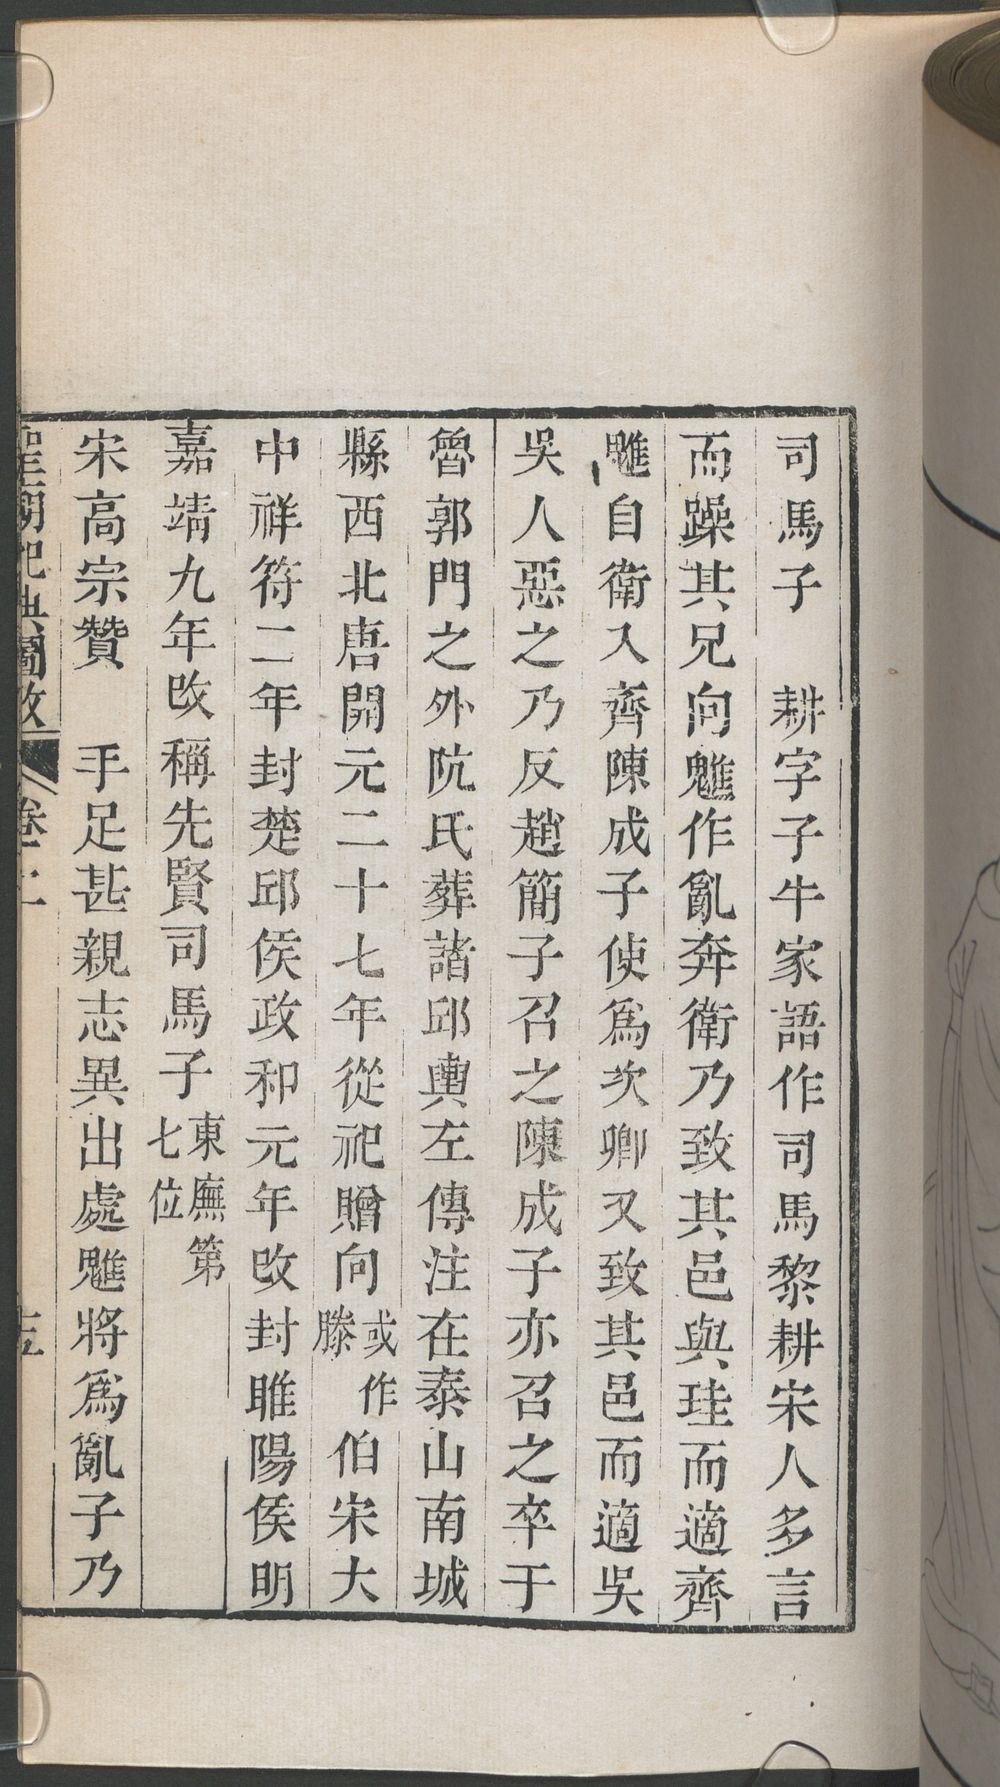 司馬子　耕字子牛家語作司馬黎耕宋人多言
而躁其兄向魋作亂奔衛乃致其邑與珪而適齊
魋自衛入齊陳成子使爲次卿又致其邑而適吳
吳人惡之乃反趙簡子召之陳成子亦召之卒于
魯郭門之外阬氏葬諸邱輿左傳注在泰山南城
縣西北唐開元二十七年從祀贈向或作滕伯宋大
中祥符二年封楚邱侯政和元年改封睢陽侯明
嘉靖九年改稱先賢司馬子東廡第七位
宋高宗贊　手足甚親志異出處魋將爲亂子乃
聖廟祀典圖攷　卷二